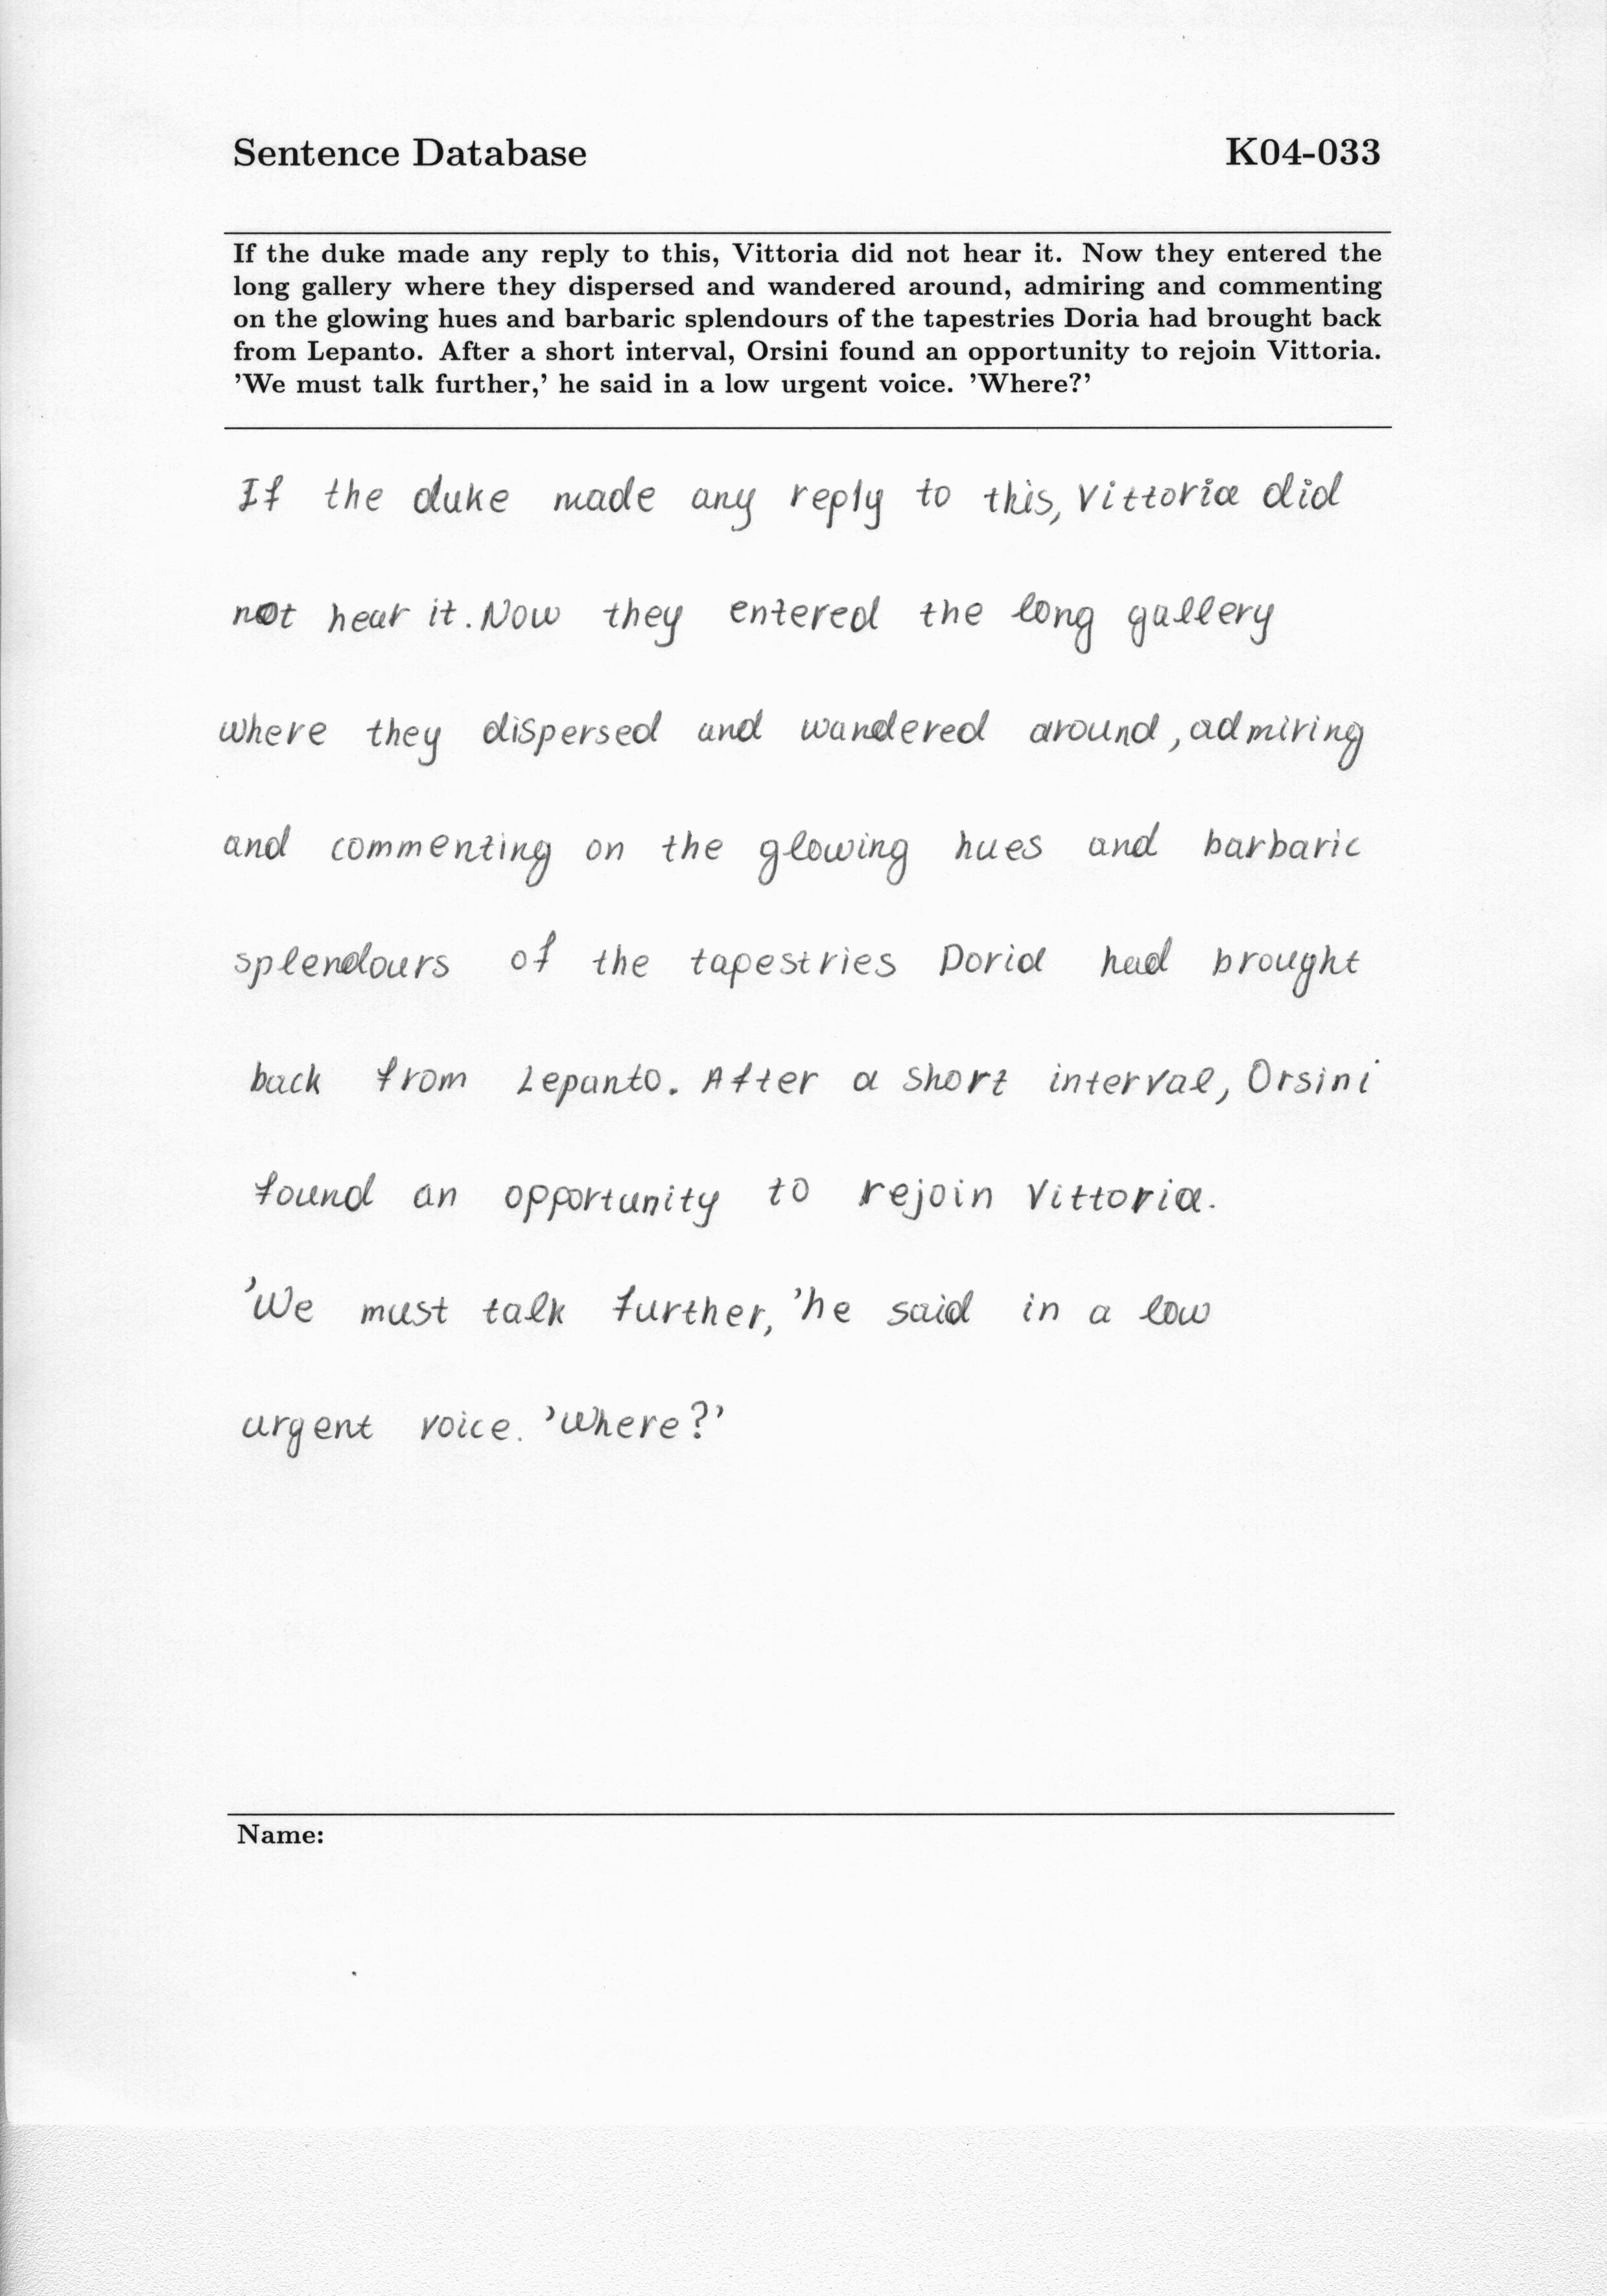 Sentence Database K04-033
If the duke made any reply to this, Vittoria did not hear it. Now they entered the
long gallery where they dispersed and wandered around, admiring and commenting
on the glowing hues and barbaric splendours of the tapestries Doria had brought back
from Lepanto. After a short interval, Orsini found an opportunity to rejoin Vittoria.
'We must talk further,' he said in a low urgent voice. 'Where?'
If the duke made any reply to this, Vittoria did
not hear it. Now they entered the long gallery
where they dispersed and wandered around, admiring
and commenting on the glowing hues and barbaric
splendours of the tapestries Doria had brought
back from Lepanto. After a short interval, Orsini
found an opportunity to rejoin Vittoria.
'We must talk further, 'he said in a low
urgent voice. 'Where?'
Name: